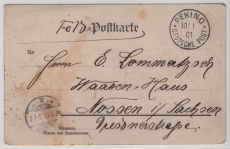 Feld-Postkarte
PEKING
10/1
01
DEUTSCHE POST
An
Herrn E. Lommatzsch
Waaben-Haus
Nossen i/Sachsen
Dresdnerstraße.